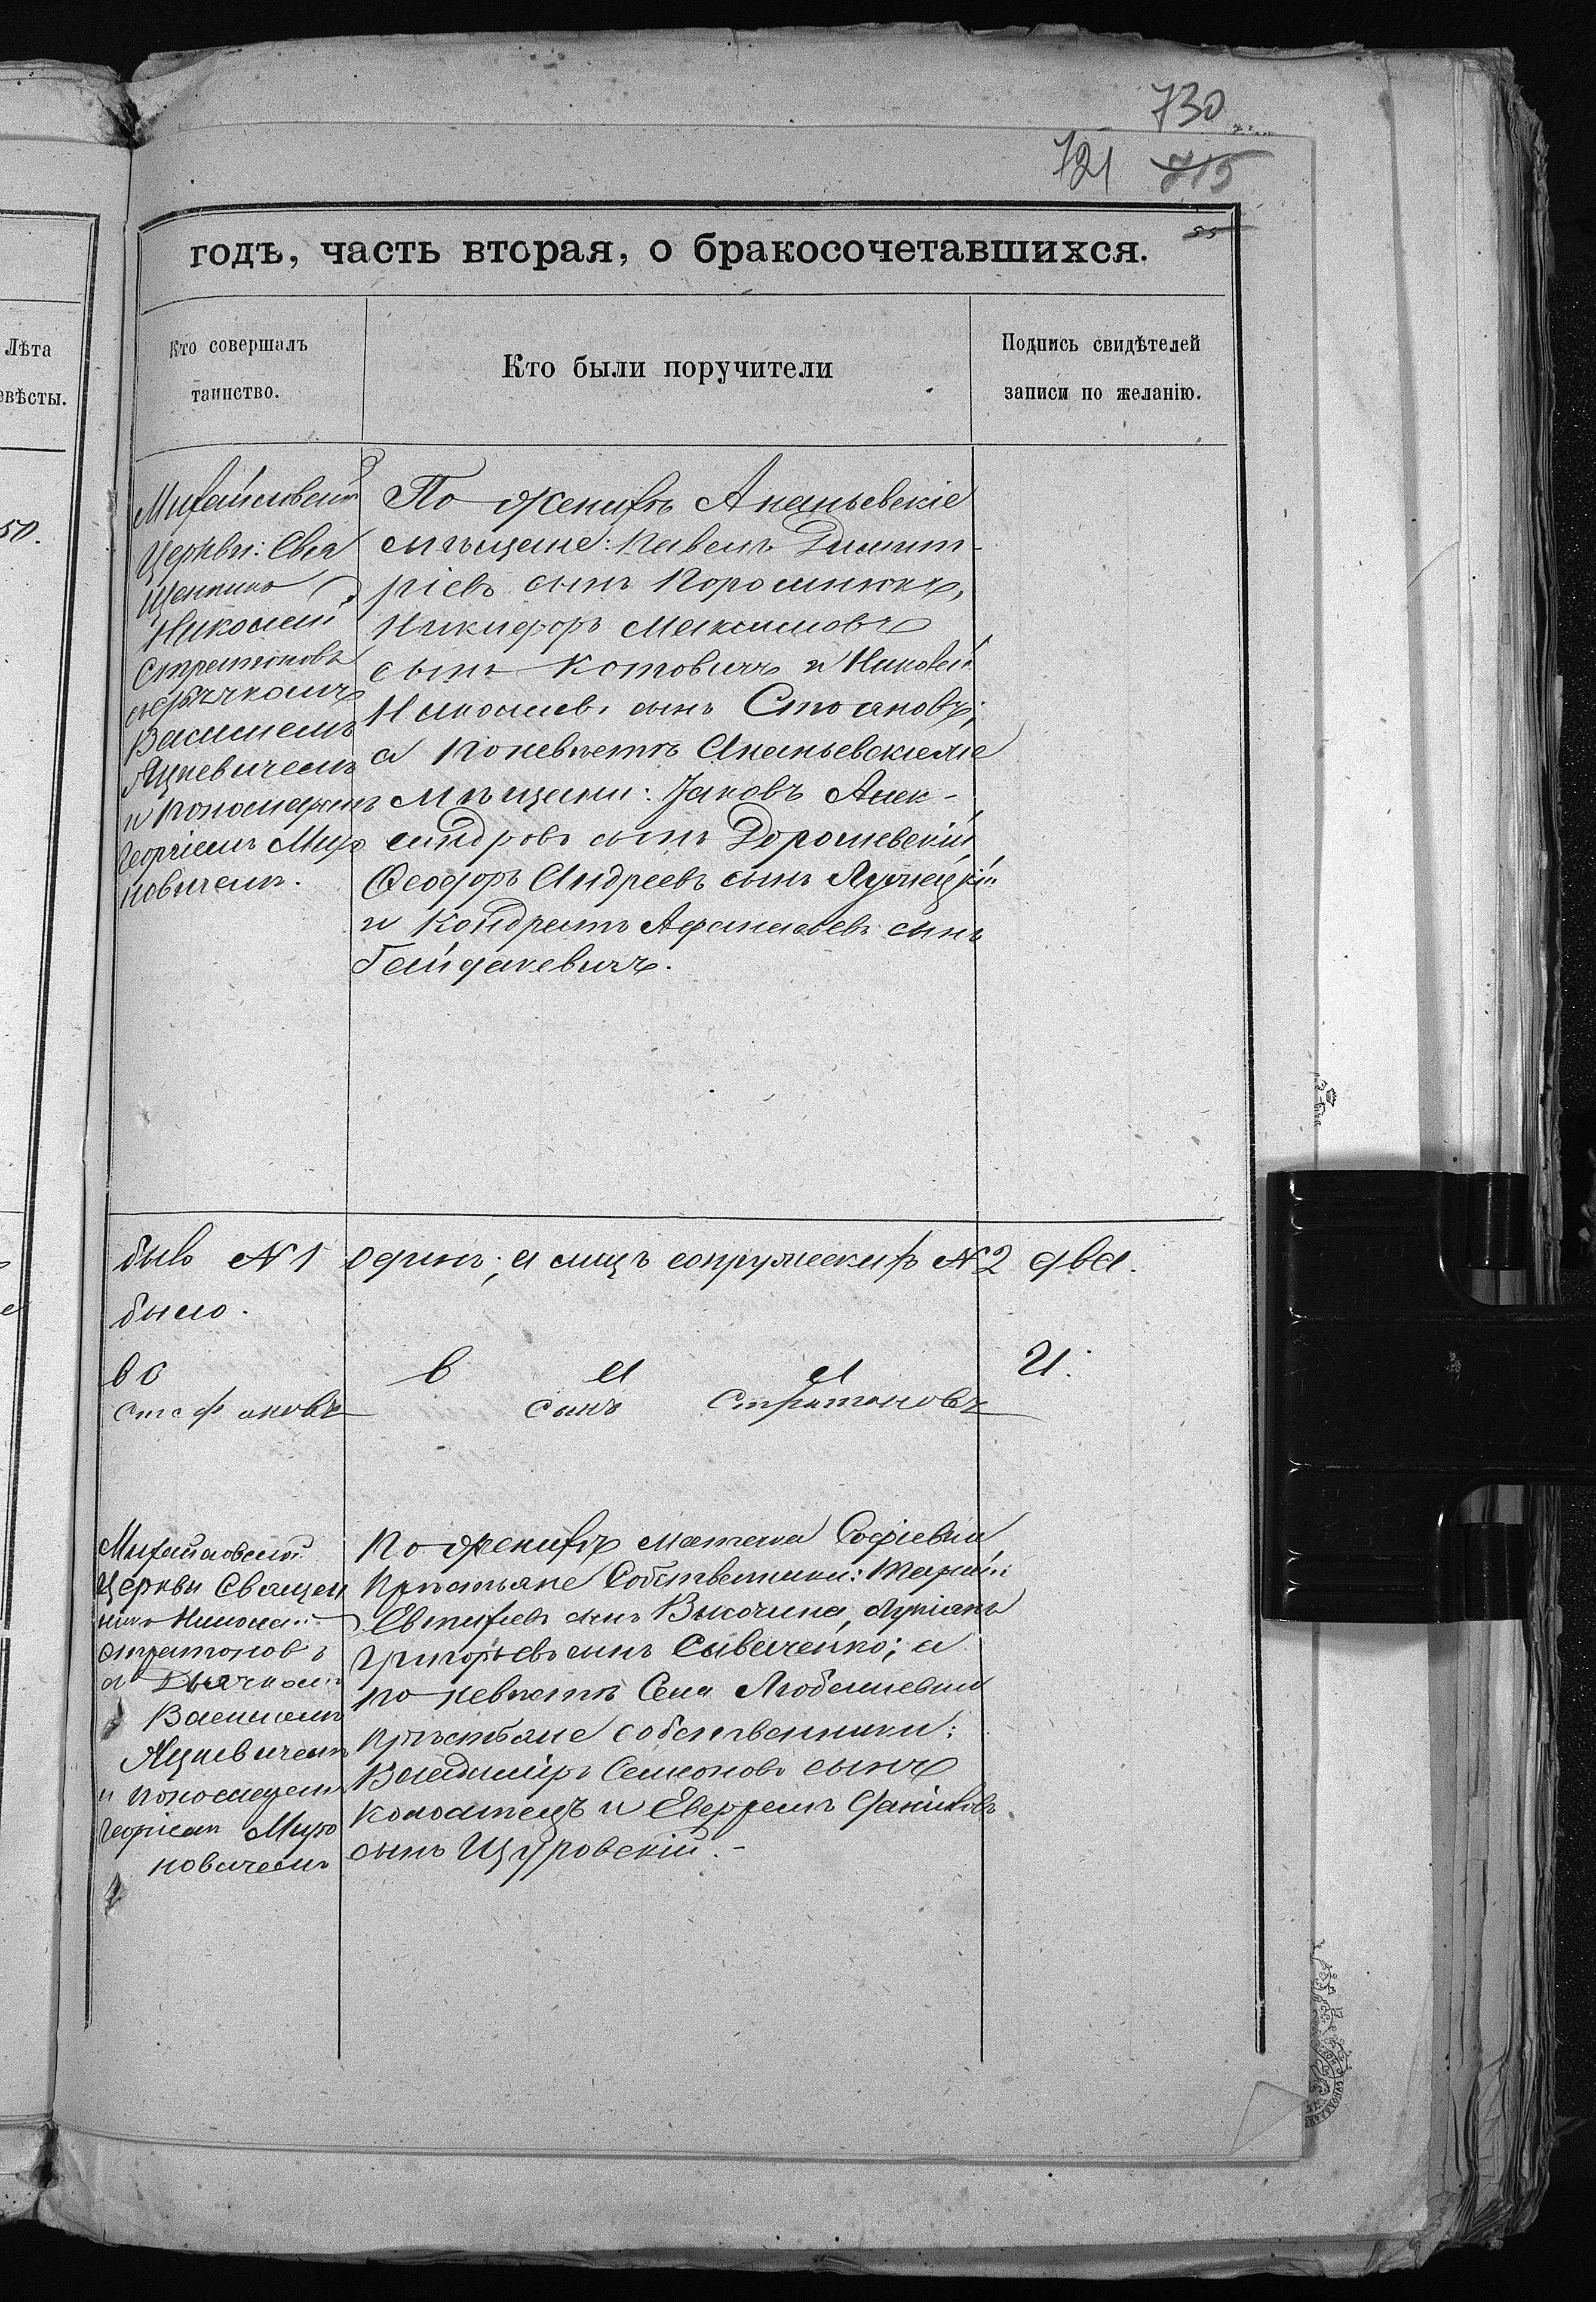 730
721 715
55
годъ, часть вторая, о бракосочетавшихся.
Лѣта
евѣсты.
50.
Кто совершалъ
таинство.
Кто были поручители
Подпись свидѣтелей
записи по желанію.
Михайловской
Церкви: Свя
щенникъ
Николай
Стратоновъ
съ дьячкомъ
Василіемъ
Яцкевичемъ
и пономаремъ
Георгіемъ Миро
новичемъ.
По женихѣ Ананьевскіе
мѣщане: Павелъ Димит-
ріевъ сынъ Поромнюкъ,
Никифоръ Максимовъ
сынъ Котовичъ и Николай
Николаевъ сынъ Стояновъ;
а по невѣстѣ Ананьевскіе
мѣщане: Іаковъ Алек-
сандровъ сынъ Дорошевскій
Ѳеодоръ Андреевъ сынъ Лужецкій
и Кондратъ Афанасьевъ сынъ
Гайдакевичъ.
бывъ №1 одинъ; а лицъ сопружескихъ №2 два.
было.
во в а а и.
Стефановъ сынъ Стратоновъ
Михайловской
Церкви Священ
никъ Николай
Стратоновъ
съ Дьячкомъ
Василіемъ
Яцкевичемъ
и пономаремъ
Георгіемъ Миро
новичемъ
По женихѣ Софіевки
крестьяне Собственники:
Евтихіевъ сынъ Высочина, Лукіанъ
Григорьевъ сынъ Саваченко; а
по невѣстѣ Села
крѣстьяне собственники:
Владиміръ Семеновъ сынъ
Коломіецъ и Даниловъ
сынъ Щуровскій.-